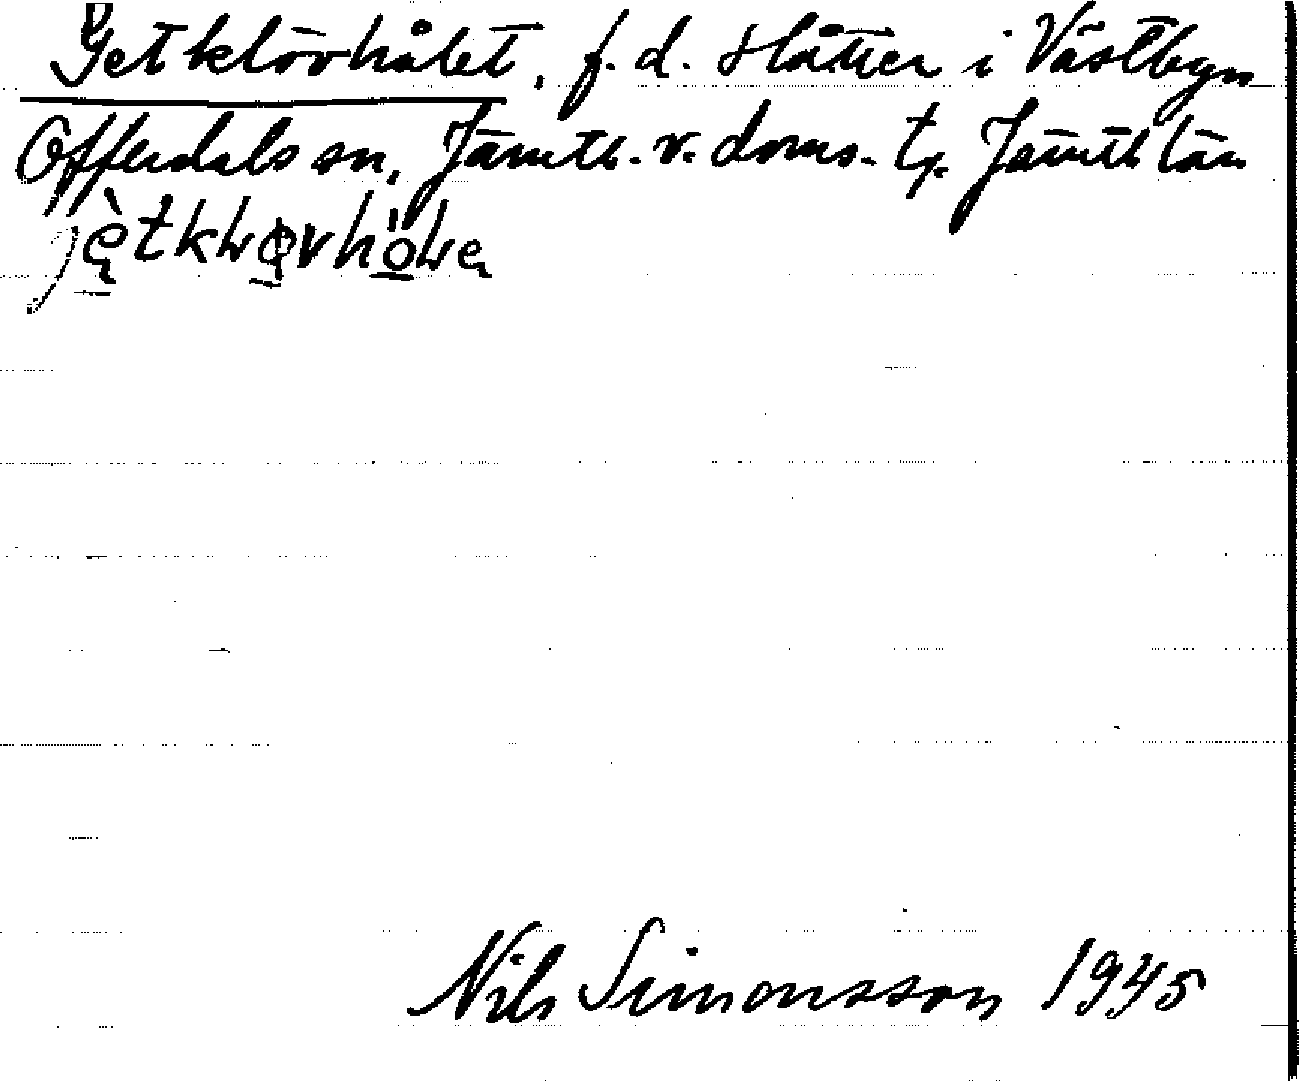 Getklövhålet, f.d. slåtter i Västbyn
Offerdals sn, Jämtl. v. doms. tg. Jämtl län
Nils Simonsson 1945